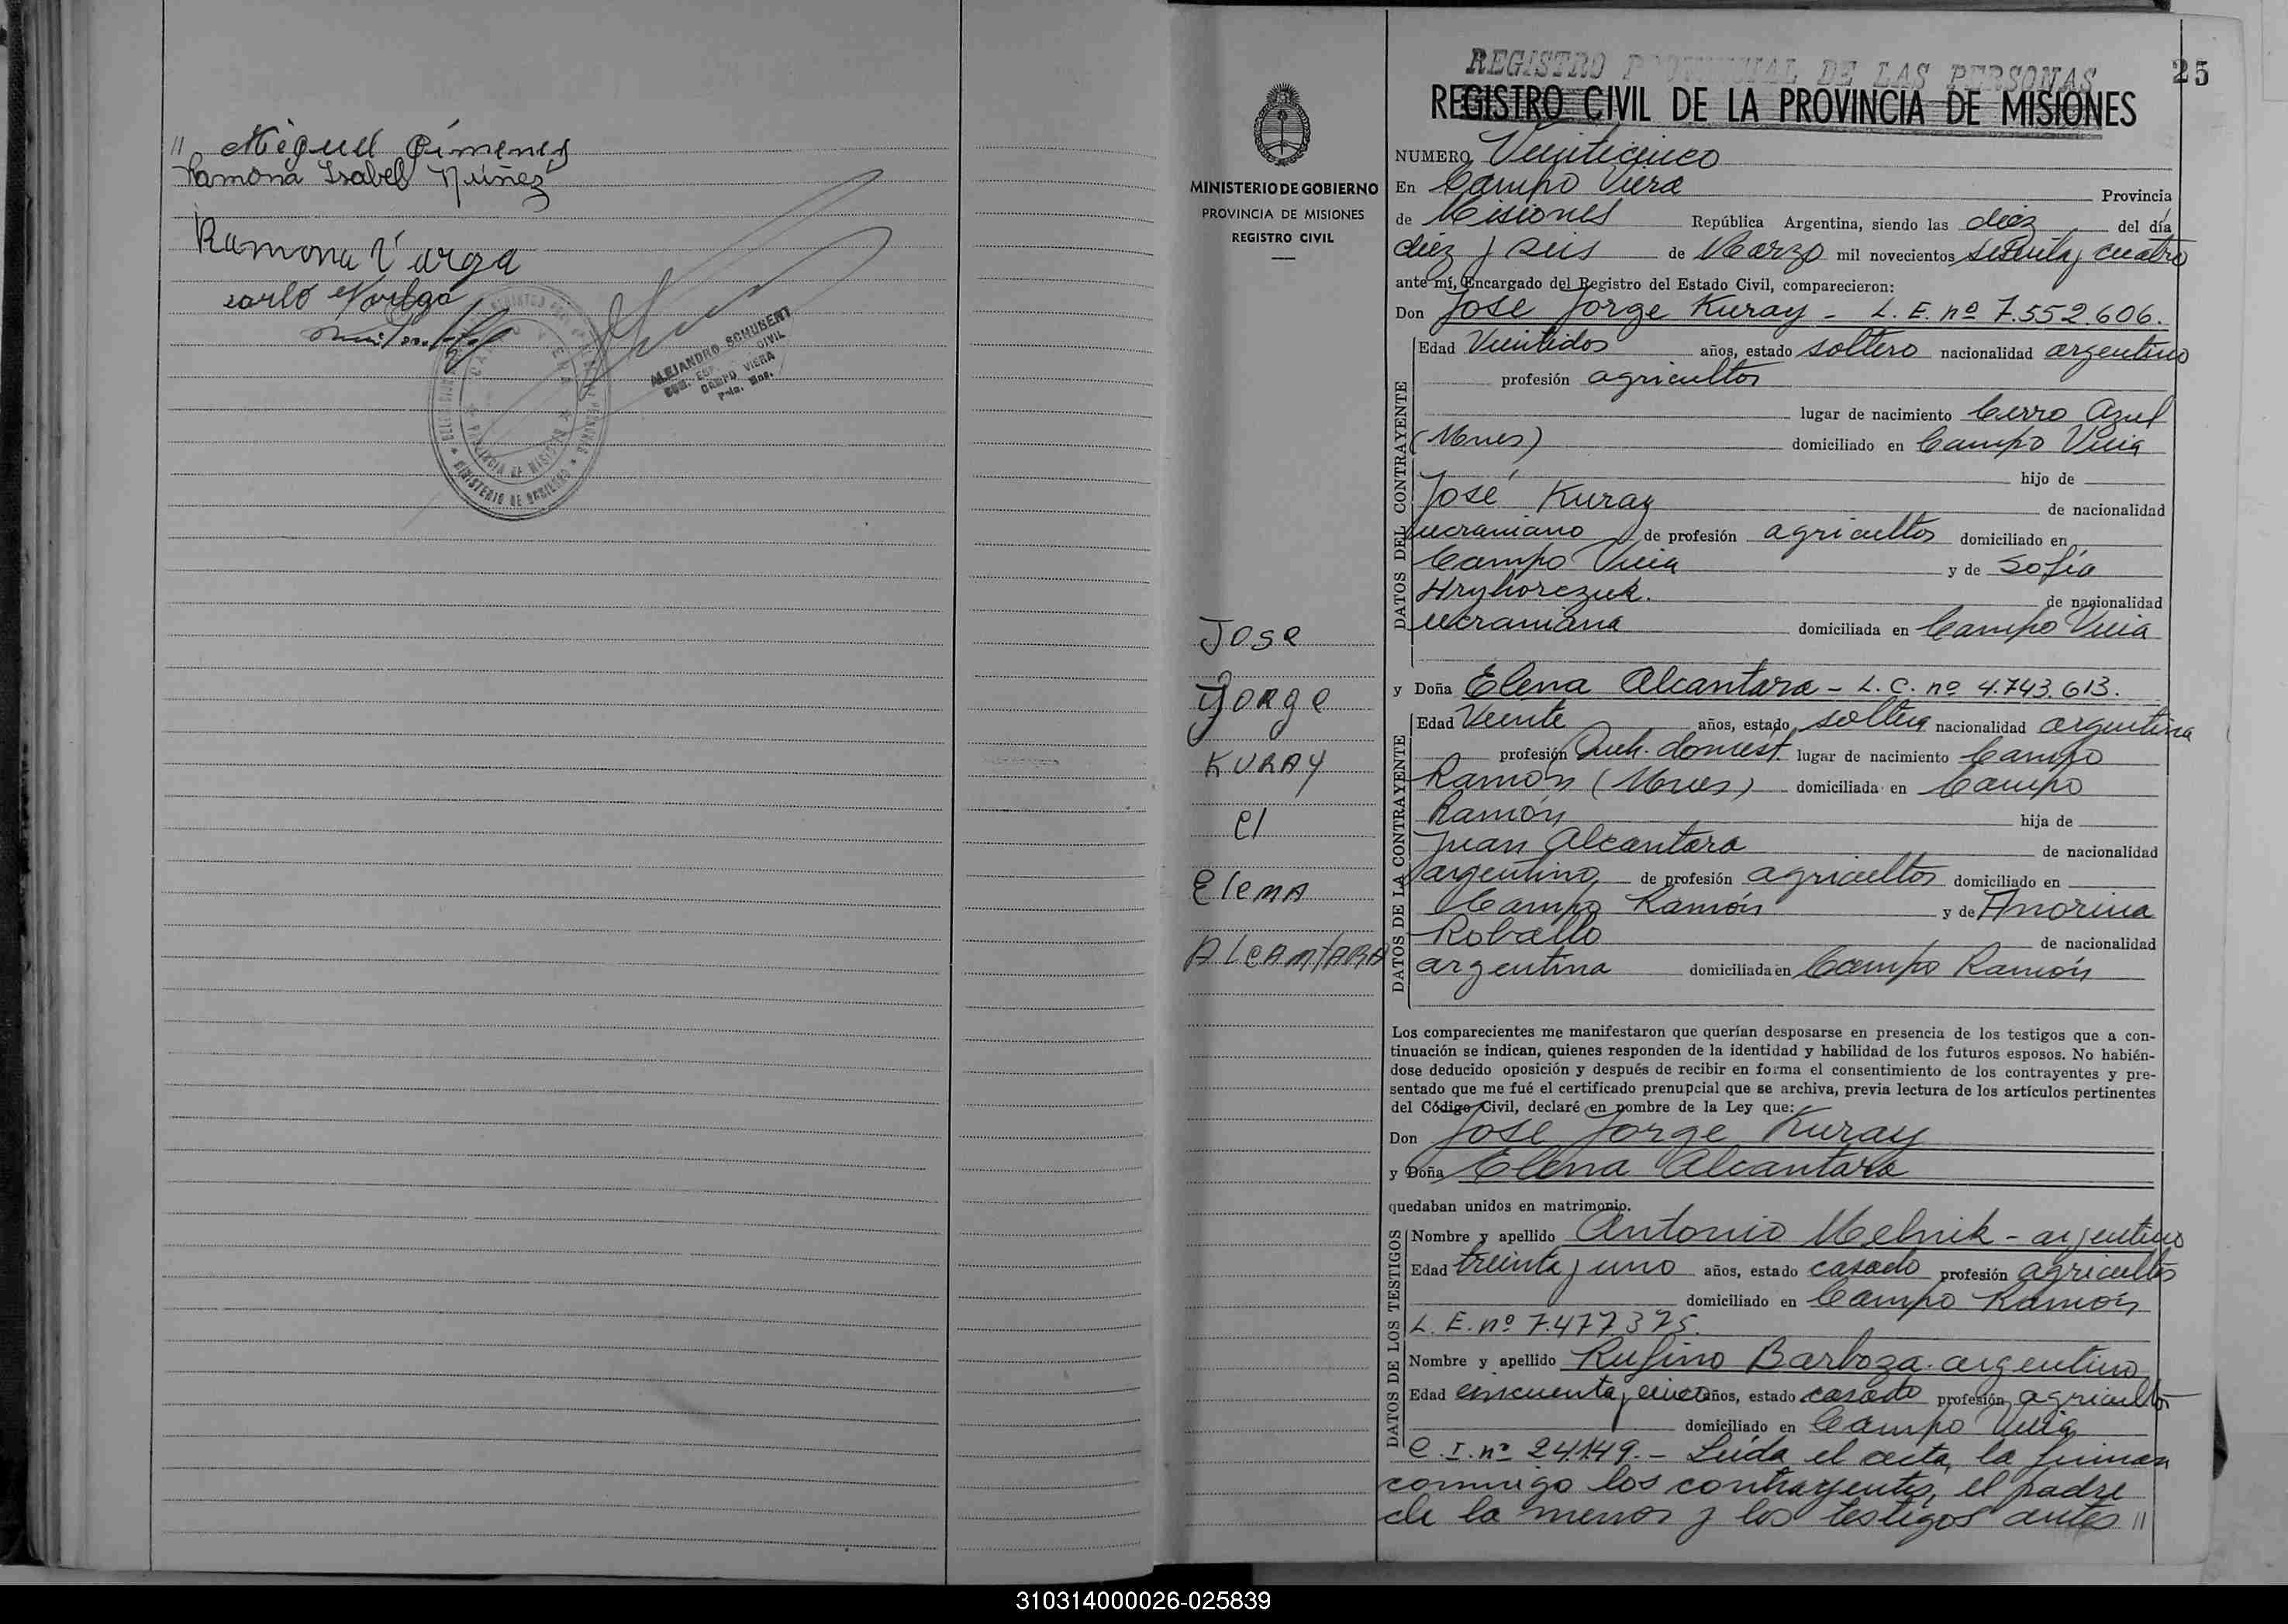 " Miguel Gímenez
Ramona Isabel Núñez
Ramona Varga
ALEJANDRO SCHUBERT
CIVIL
CAMPO VIERA
Pcia. Mnes.
MINISTERIO DE GOBIERNO
PROVINCIA DE MISIONES
25
REGISTRO PROVINCIAL DE LAS PERSONAS
REGISTRO CIVIL DE LA PROVINCIA DE MISIONES
MINISTERIO DE GOBIERNO
PROVINCIA DE MISIONES
REGISTRO CIVIL
Jose
Jorge
KURAY
c/
Elena
ALCANTARA
NUMERO Veinticinco
En Campo Viera Provincia
de Misiones República Argentina, siendo las diez del día
diez y seis de Marzo mil novecientos sesenta y cuatro
ante mí, Encargado del Registro del Estado Civil, comparecieron:
Don José Jorge Kuray - L. E. nº 7.552.606.
DATOS DEL CONTRAYENTE
Edad Vientidos años, estado soltero nacionalidad argentino
profesión agricultor
lugar de nacimiento Cerro Azul
(Mnes) domiciliado en Campo Viera
hijo de
José Kuray de nacionalidad
ucraniano de profesión agricultor domiciliado en
Campo Viera y de Sofía
Hryhorczuk. de nacionalidad
ucraniana domiciliada en Campo Viera
y Doña Elena Alcantara - L. C. nº 4.743.613.
DATOS DE LA CONTRAYENTE
Edad Veinte años, estado soltera nacionalidad argentina
profesión Queh. domest. lugar de nacimiento Campo
Ramón (Mnes) domiciliada en Campo
Ramón hija de
Juan Alcantara de nacionalidad
argentino de profesión agricultor domiciliado en
Campo Ramón y de Anorina
Roballo de nacionalidad
argentina domiciliada en Campo Ramón
Los comparecientes me manifestaron que querían desposarse en presencia de los testigos que a con-
tinuación se indican, quienes responden de la identidad y habilidad de los futuros esposos. No habién-
dose deducido oposición y después de recibir en forma el consentimiento de los contrayentes y pre-
sentado que me fué el certificado prenupcial que se archiva, previa lectura de los artículos pertinentes
del Código Civil, declaré en nombre de la Ley que:
Don José Jorge Kuray
y Doña Elena Alcantara
quedaban unidos en matrimonio.
DATOS DE LOS TESTIGOS
Nombre y apellido Antonio Melnik - argentino
Edad treinta y uno años, estado casado profesión agricultor
domiciliado en Campo Ramón
L. E. nº 7.477375.
Nombre y apellido Rufino Barboza. argentino
Edad cincuenta y cinco años, estado casado profesión agricultor
domiciliado en Campo Viera
C. I. nº 24.149.- Leída el acta, la firman
conmigo los contrayentes, el padre
de la menor y los testigos antes "
310314000026-025839